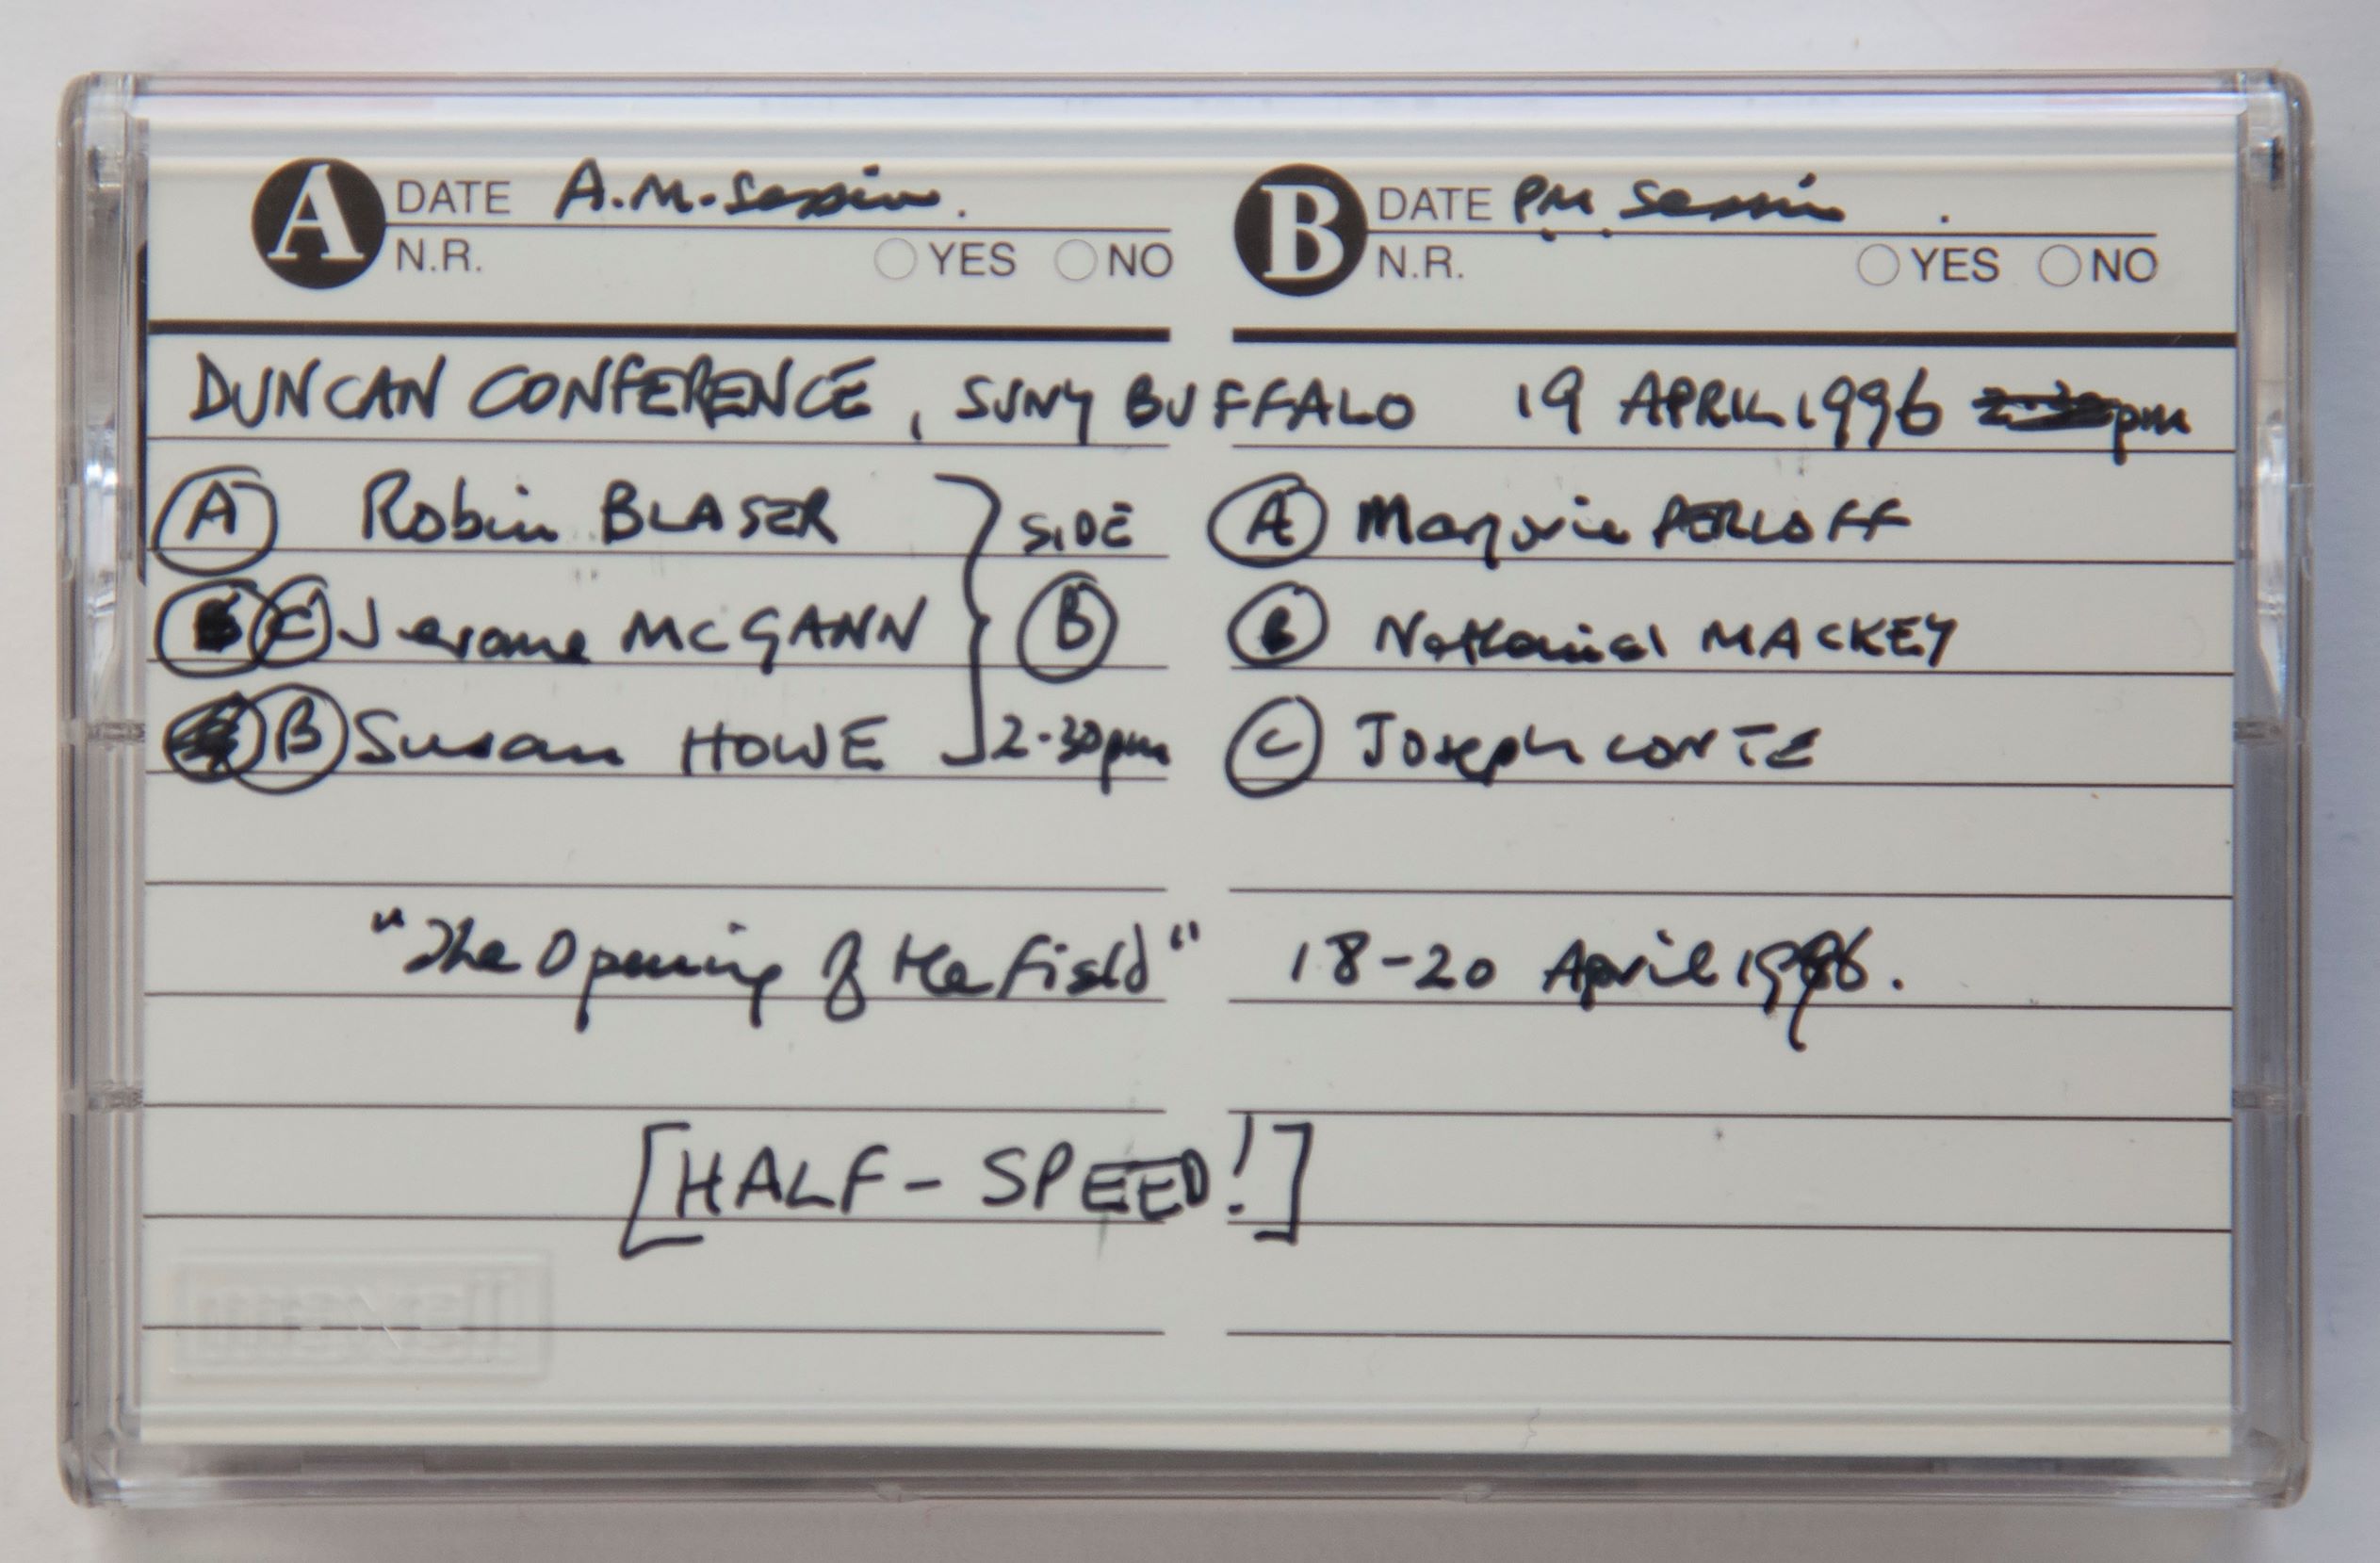 A DATE A.M. Session. B DATE PM Session.
N.R. YES NO N.R. YES NO
DUNCAN CONFERENCE, SUNY BUFFALO 19 APRIL 1996 pm
A Robin BLASER SIDE A Marjorie PERLOFF
B C Jerome MCGANN B B Nathaniel MACKEY
B Susan HOWE 2.30pm C Joseph CONTE
"The Opening of the Field" 18-20 April 1996.
[HALF-SPEED!]